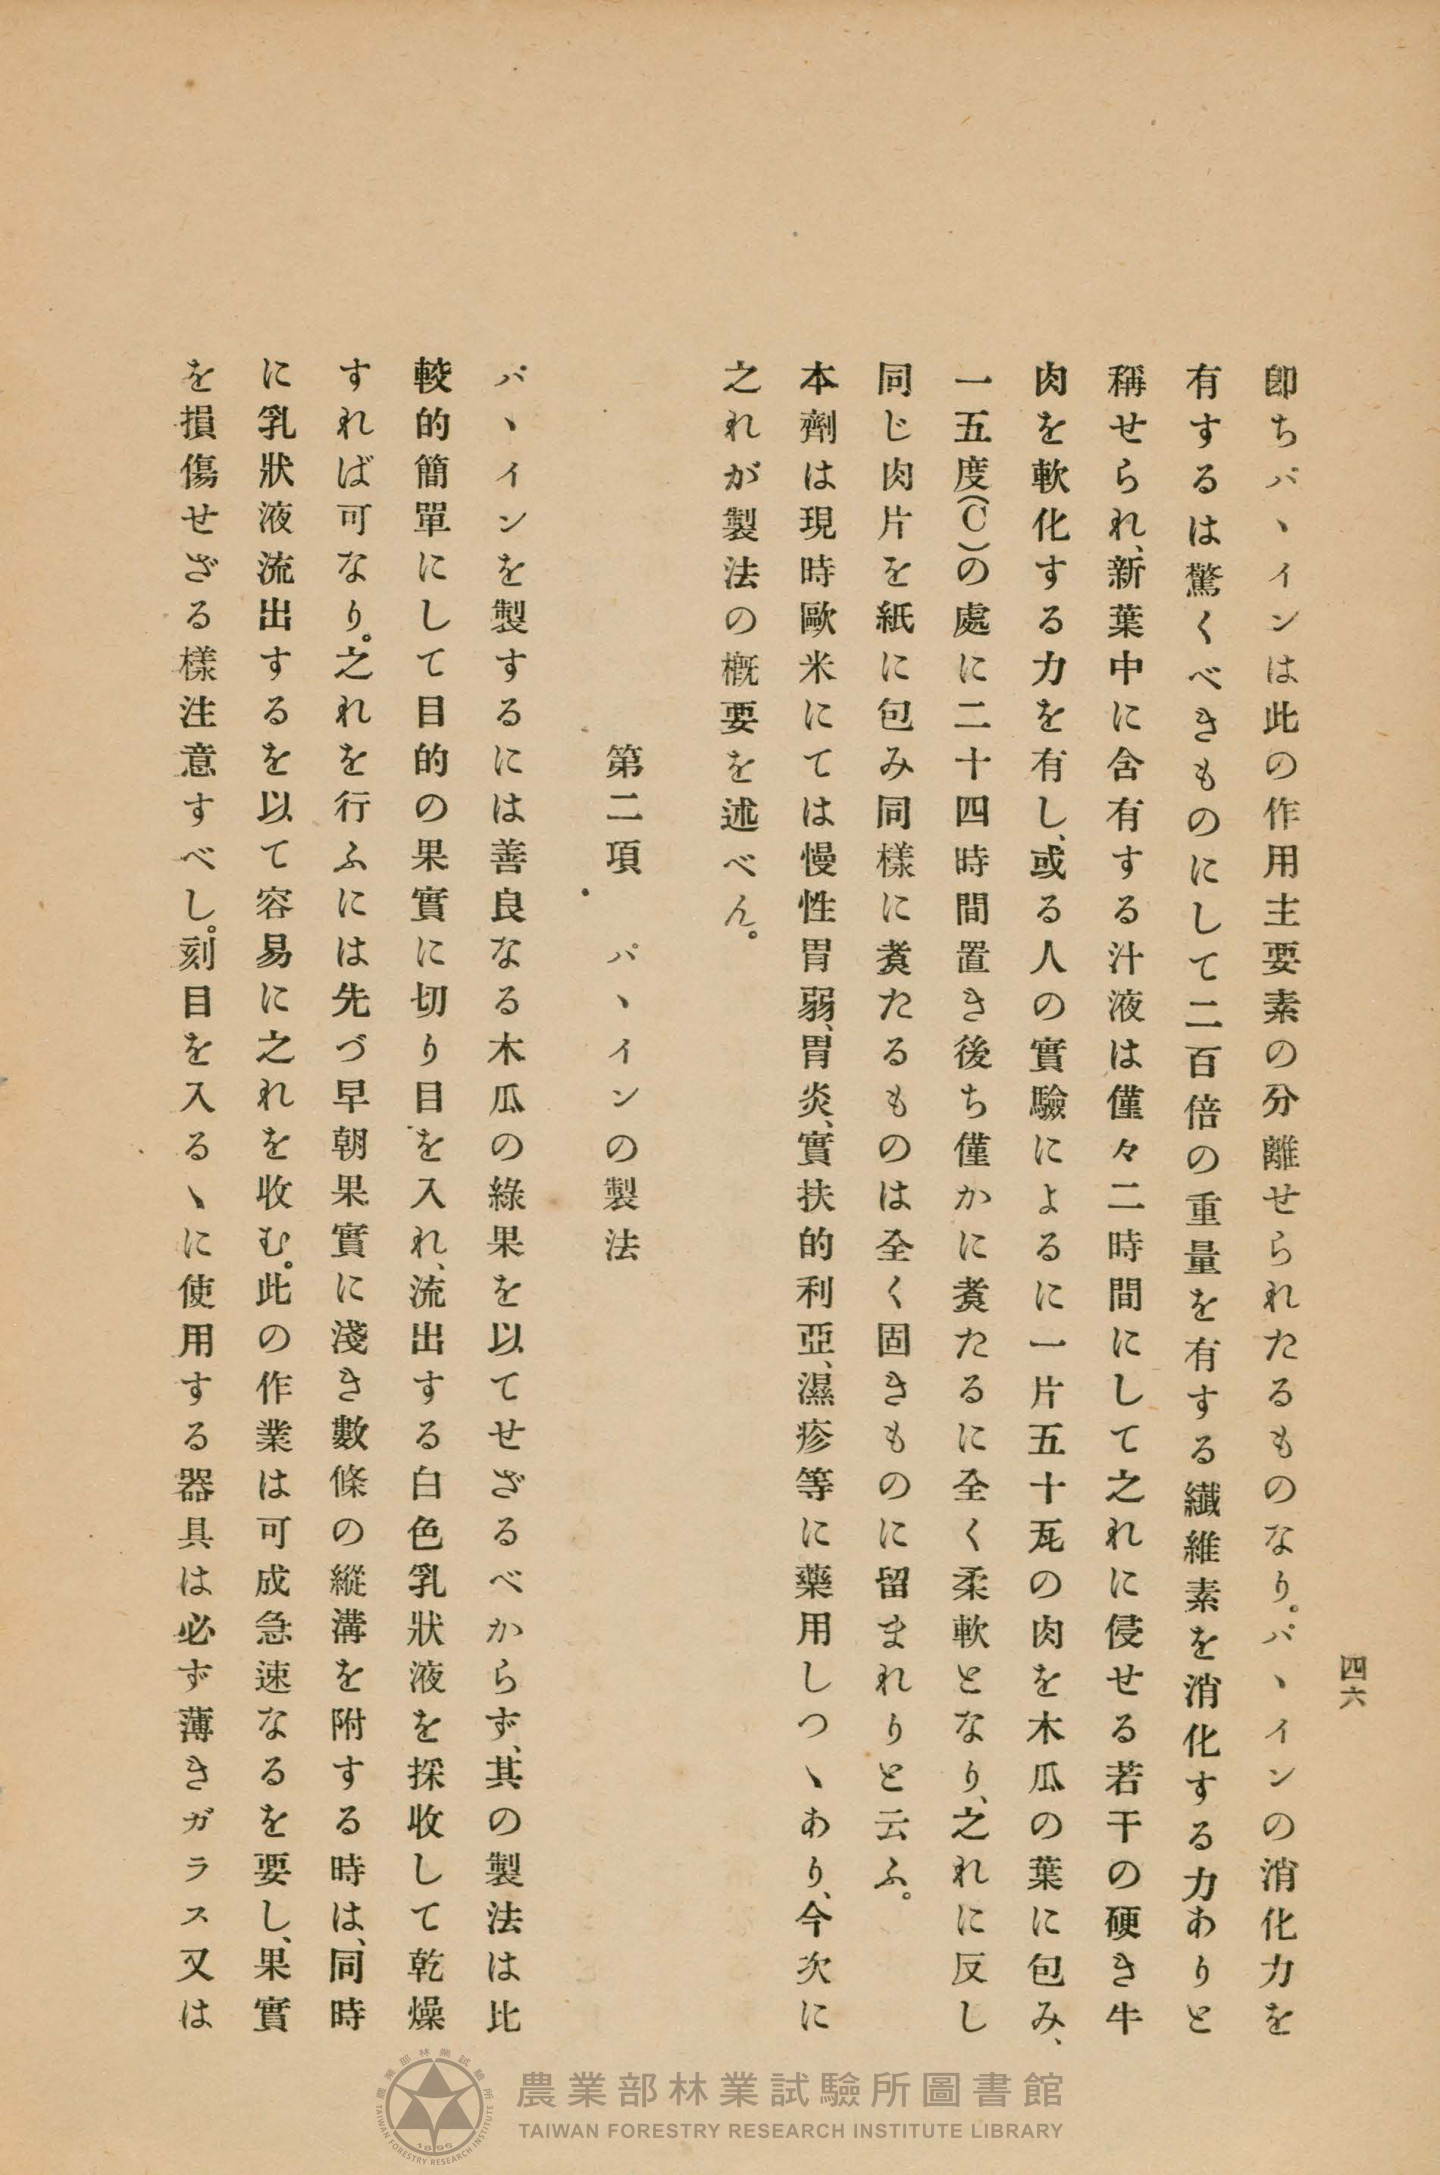 四六
卽ちパヽインは此の作用主要素の分離せられたるものなり。パヽインの消化力を
有するは驚くべきものにして二百倍の重量を有する纖維素を消化する力ありと
稱せられ、新葉中に含有する汁液は僅々二時間にして之れに侵せる若干の硬き牛
肉を軟化する力を有し、或る人の實驗によるに一片五十瓦の肉を木瓜の葉に包み、
一五度(C)の處に二十四時間置き後ち僅かに煑たるに全く柔軟となり、之れに反し
同じ肉片を紙に包み同樣に煑たるものは全く固きものに留まれりと云ふ。
本劑は現時歐米にては慢性胃弱、胃炎、實扶的利亞、濕疹等に藥用しつヽあり、今次に
之れが製法の槪要を述べん。
第二項 パヽインの製法
パヽインを製するには善良なる木瓜の綠果を以てせざるべからず、其の製法は比
較的簡單にして目的の果實に切り目を入れ、流出する白色乳狀液を採收して乾燥
すれば可なり。之れを行ふには先づ早朝果實に淺き數條の縱溝を附する時は、同時
に乳狀液流出するを以て容易に之れを收む。此の作業は可成急速なるを要し、果實
を損傷せざる樣注意すべし。刻目を入るヽに使用する器具は必ず薄きガラス又は
農業部林業試驗所圖書館
TAIWAN FORESTRY RESEARCH INSTITUTE LIBRARY
農業部林業試驗所
TAIWAN FORESTRY RESEARCH INSTITUTE
1896